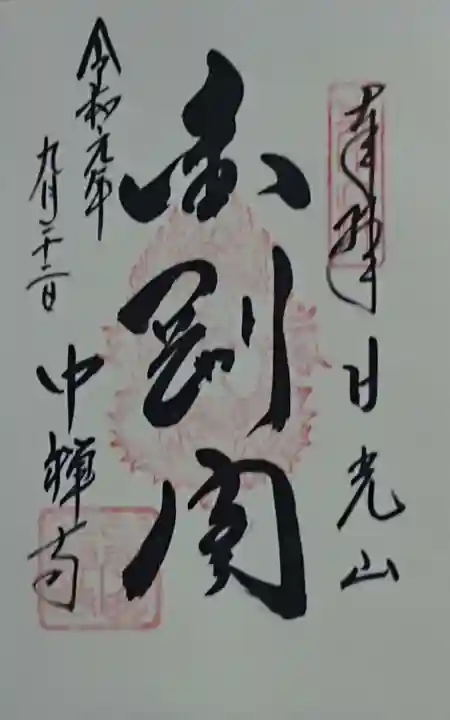 奉拝
日光山
金剛閣
令和元年
九月二十二日
中禅寺